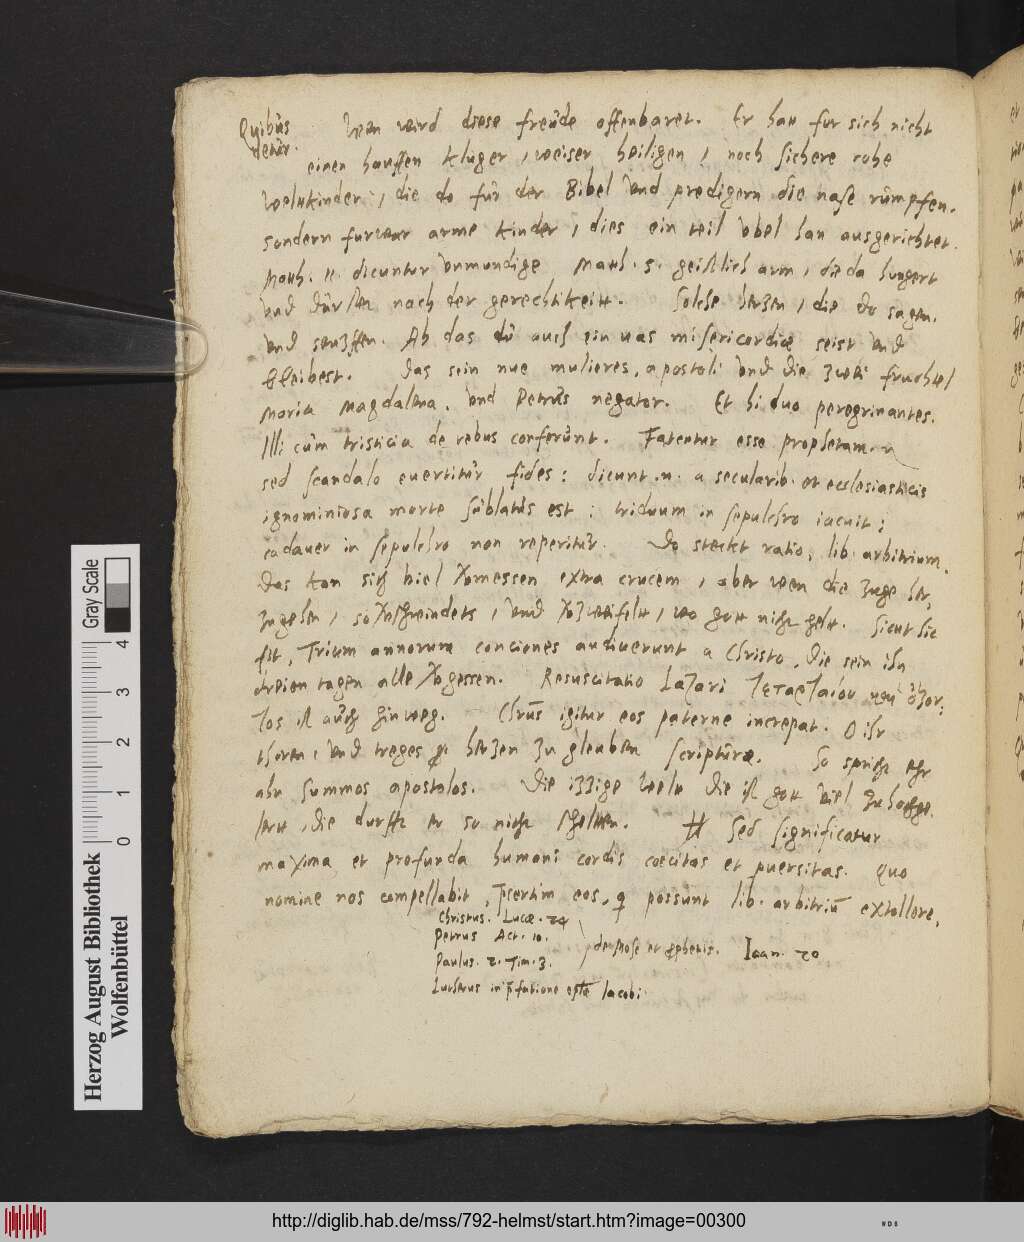 Quibus
detur.
Wem wird diese freude offenbaret. Er hatt fur sich nicht
einen hauffen kluger, weiser heiligen, noch sichere rohe
weltkinder, die do fur der Bibel und predigern die nase rümpfen.
sondern furwar arme kinder, dies ein teil vbel han ausgerichtet.
Matth. 11. dicuntur vnmundige Matth. 5. geistlich arm, die da hungert
vnd dürsten nach der gerechtikeitt. Solche hertzen, die do sagen.
vnd seuffzen. Ab das du auch ein vas misericordiæ seist vnd
bleibest. Das sein nue mulieres, apostoli vnd die
Maria Magdalena. vnd Petrus negator. Et hi duo peregrinantes.
Illi cum tristicia de rebus conferunt. Fatentur esse prophetam
sed scandalo euertitur fides: dicunt .n. a secularib. et ecclesiasticis
ignominiosa morte sublatus est: triduum in sepulchro iacuit:
cadauer in sepulchro non reperitur. Do steckt ratio, lib. arbitrium.
Das kan sich viel vormessen extra crucem, aber wen die zuge her,
zugehen, so vorschwindets, vnd vorzweifelt, wo gott nicht helt. Sicut hic
fit, Trium annorum conciones audiuerunt a Christo. die sein ihn
dreien tagen alle vorgessen. Resuscitatio Lazari
ist auch hinweg. Chrus igitur eos paterne increpat. O ihr
thoren, vnd treges hertzen zu gleuben scripturæ. So spricht ehr
ahn summos apostolos. Die itzige welt die ist gott viel zu hochge,
lert, die durfft er so nicht schelten. # Sed significatur
maxima et profunda humani cordis cœcitas et puersitas. Quo
nomine nos compellabit, psertim eos, q possunt lib. arbitriu extollere,
Christus. Lucæ. 24
Petrus Act. 10.
Paulus. 2. Tim. 3.
de Mose et prophetis. Ioan. 20
Lutherus in pfatione eplæ Iacobi.
Herzog August Bibliothek
Wolfenbüttel
0 1 2 3 4
Gray Scale
http://diglib.hab.de/mss/792-helmst/start.htm?image=00300
WDB